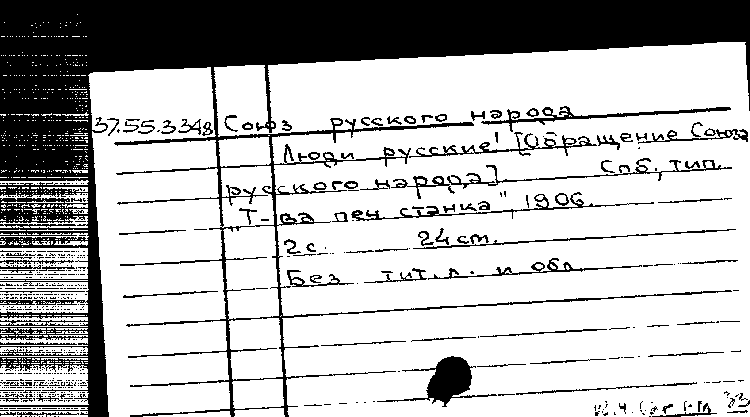 37.55.3348 Союз русского народа
Люди русские! [Обращение Союза
русского народа]. Спб, тип.
„Т-ва печ станка", 1906.
2 с. 24 cm.
Без тит. л. и обл.